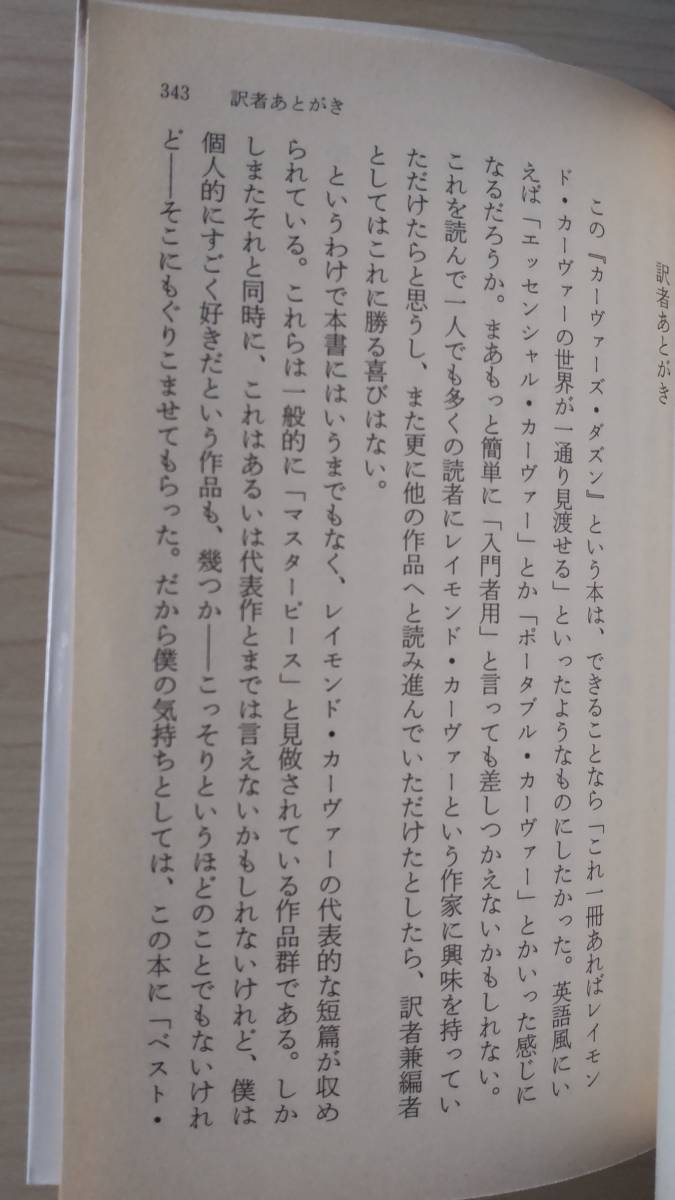 343 訳者あとがき
訳者あとがき
この『カーヴァーズ・ダズン』という本は、できることなら「これ一冊あればレイモン
ド・カーヴァーの世界が一通り見渡せる」といったようなものにしたかった。英語風にい
えば「エッセンシャル・カーヴァー」とか「ポータブル・カーヴァー」とかいった感じに
なるだろうか。まあもっと簡単に「入門者用」と言っても差しつかえないかもしれない。
これを読んで一人でも多くの読者にレイモンド・カーヴァーという作家に興味を持ってい
ただけたらと思うし、また更に他の作品へと読み進んでいただけたとしたら、訳者兼編者
としてはこれに勝る喜びはない。
というわけで本書にはいうまでもなく、レイモンド・カーヴァーの代表的な短篇が収め
られている。これらは一般的に「マスターピース」と見做されている作品群である。しか
しまたそれと同時に、これはあるいは代表作とまでは言えないかもしれないけれど、僕は
個人的にすごく好きだという作品も、幾つか——こっそりというほどのことでもないけれ
ど——そこにもぐりこませてもらった。だから僕の気持ちとしては、この本に「ベスト・